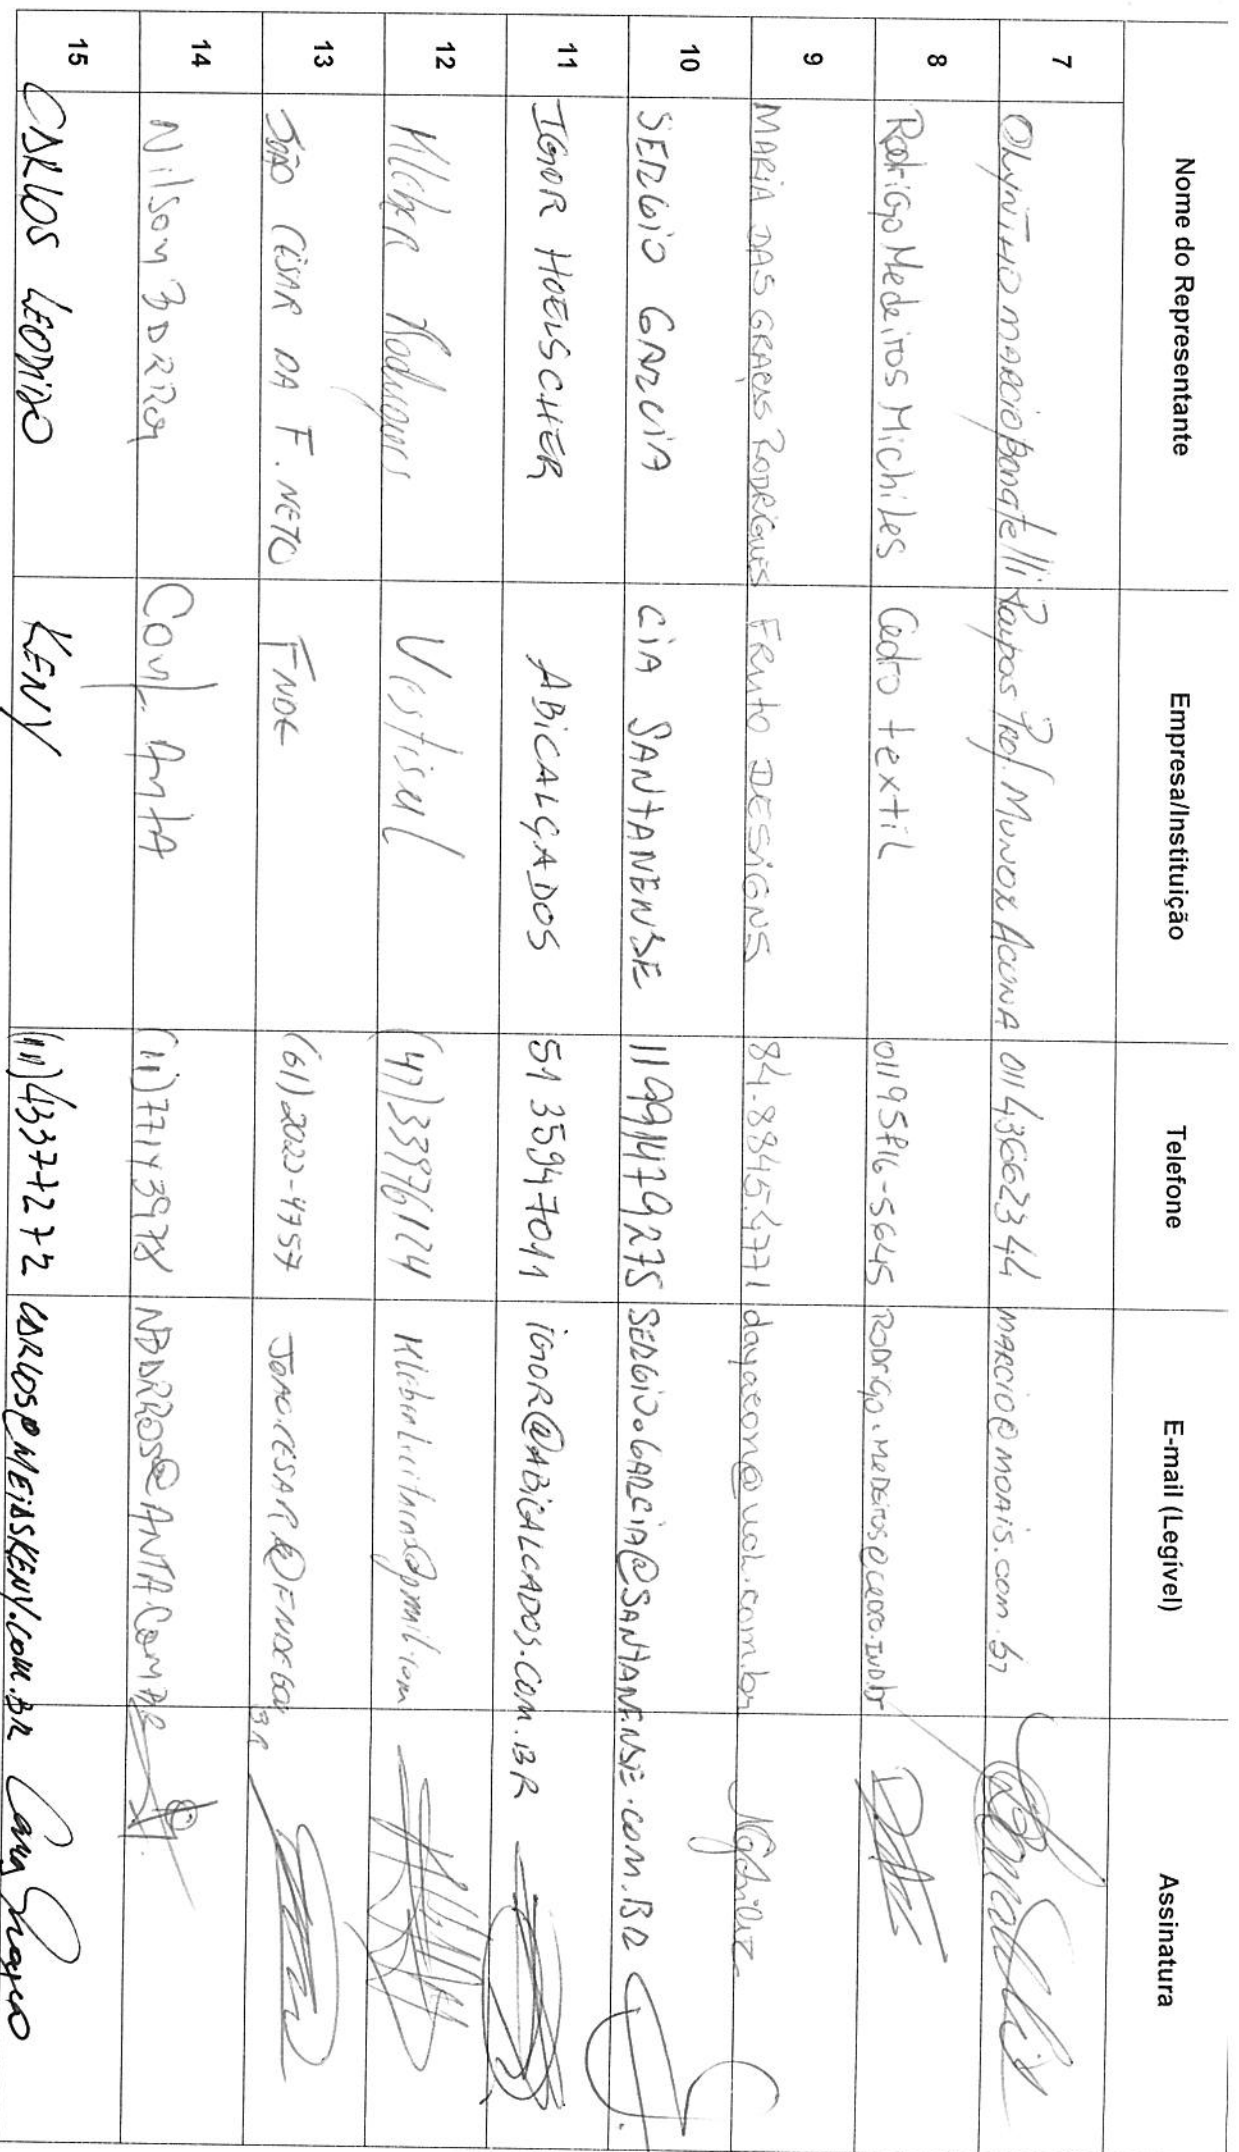 Nome do Representante Empresa/Instituição Telefone E-mail (Legível) Assinatura
7 OLYNTHO MARCIO Bonatelli Paupas Prof. MUNOX ACUNA 011 43662344 MARCIO@MOAIS.com.br
8 Rodrigo Medeiros Michiles Cedro textil RODRIGO.MEDEIROS@CEDRO.IND.br
9 MARIA DAS GRAÇAS RODRIGUES FRUTO DESIGNS 84.8845.4771
10 SERGIO GARCIA CIA SANTANENSE 11991479275 SERGIO.GARCIA@SANTANENSE.COM.BR
11 IGOR HOELSCHER ABICALÇADOS 51 35947011 IGOR@ABICALCADOS.COM.BR
12 Kleber Rodrigues Vestisul (47)33976124
13 JOÃO CÉSAR DA F. NETO FNDE (61)2022-4757
14 Nilson BARROS Coml. Anta (11)77143978
15 CARLOS LEODIDO KENY (11)43377272 CARLOS@MEIASKENY.COM.BR